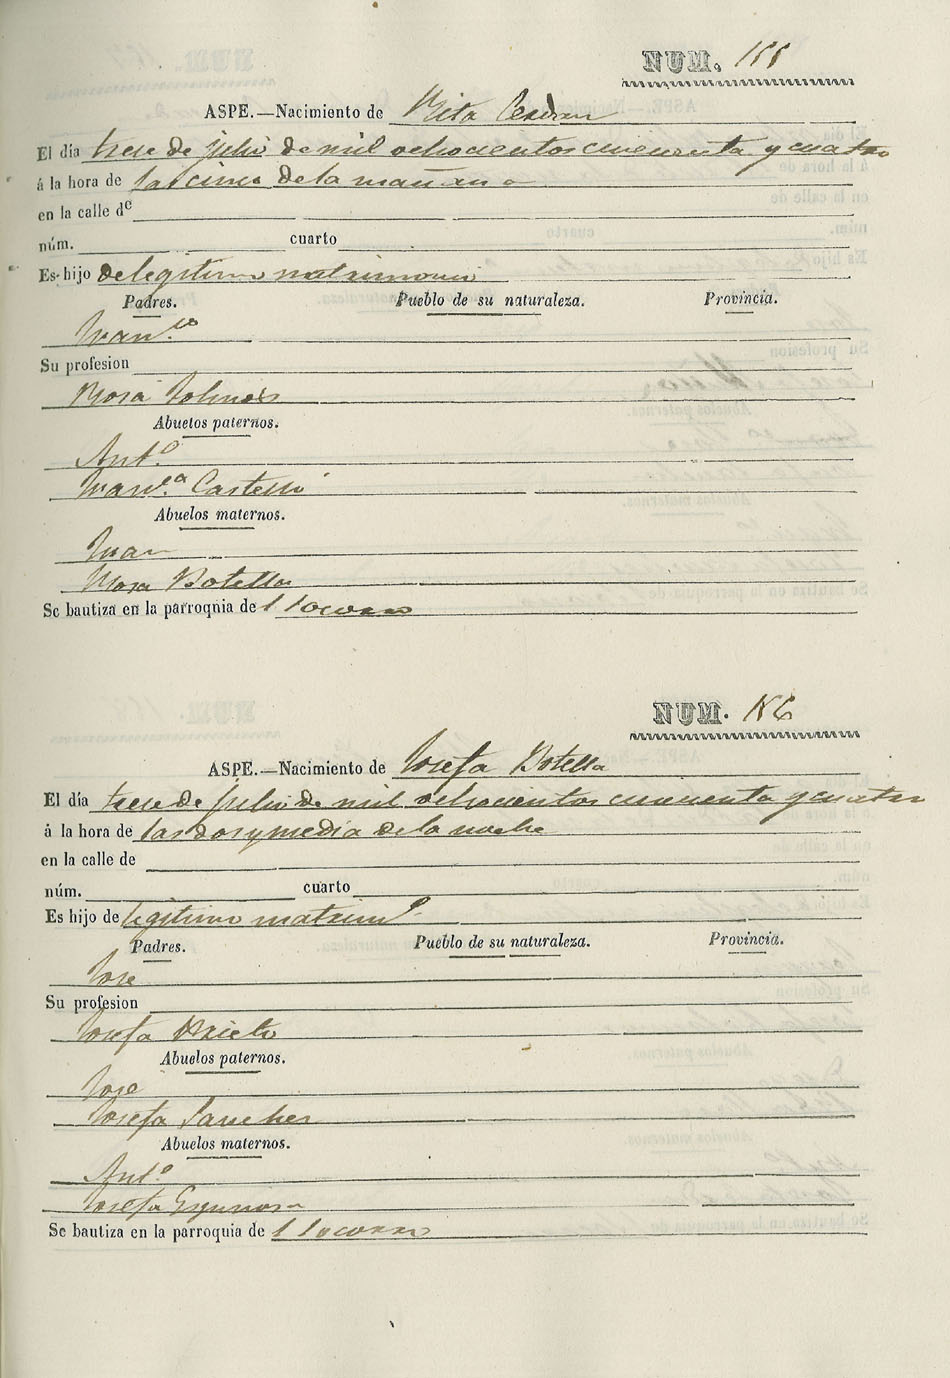 NUM. 155
ASPE.—Nacimiento de Rita Cerdan
El día trece de julio de mil ochocientos cincuenta y cuatro
á la hora de las cinco de la mañana
en la calle de
núm. cuarto
Es hijo de legitimo matrimonio
Padres. Pueblo de su naturaleza. Provincia.
Franco
Su profesion
Rosa
Abuelos paternos.
Anto
Franca Castelló
Abuelos maternos.
Juan
Rosa Botella
Se bautiza en la parroquia del Socorro
NUM. 156
ASPE.—Nacimiento de Josefa Botella
El día trece de julio de mil ochocientos cincuenta y cuatro
á la hora de las dos y media de la noche
en la calle de
núm. cuarto
Es hijo de legitimo matrimo
Padres. Pueblo de su naturaleza. Provincia.
Jose
Su profesion
Josefa Prieto
Abuelos paternos.
Jose
Josefa Sanchez
Abuelos maternos.
Anto
Josefa Espinosa
Se bautiza en la parroquia del Socorro